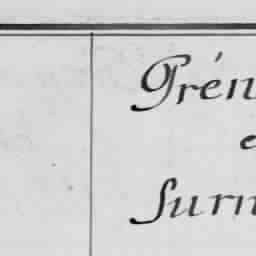 Prén
e
Surn